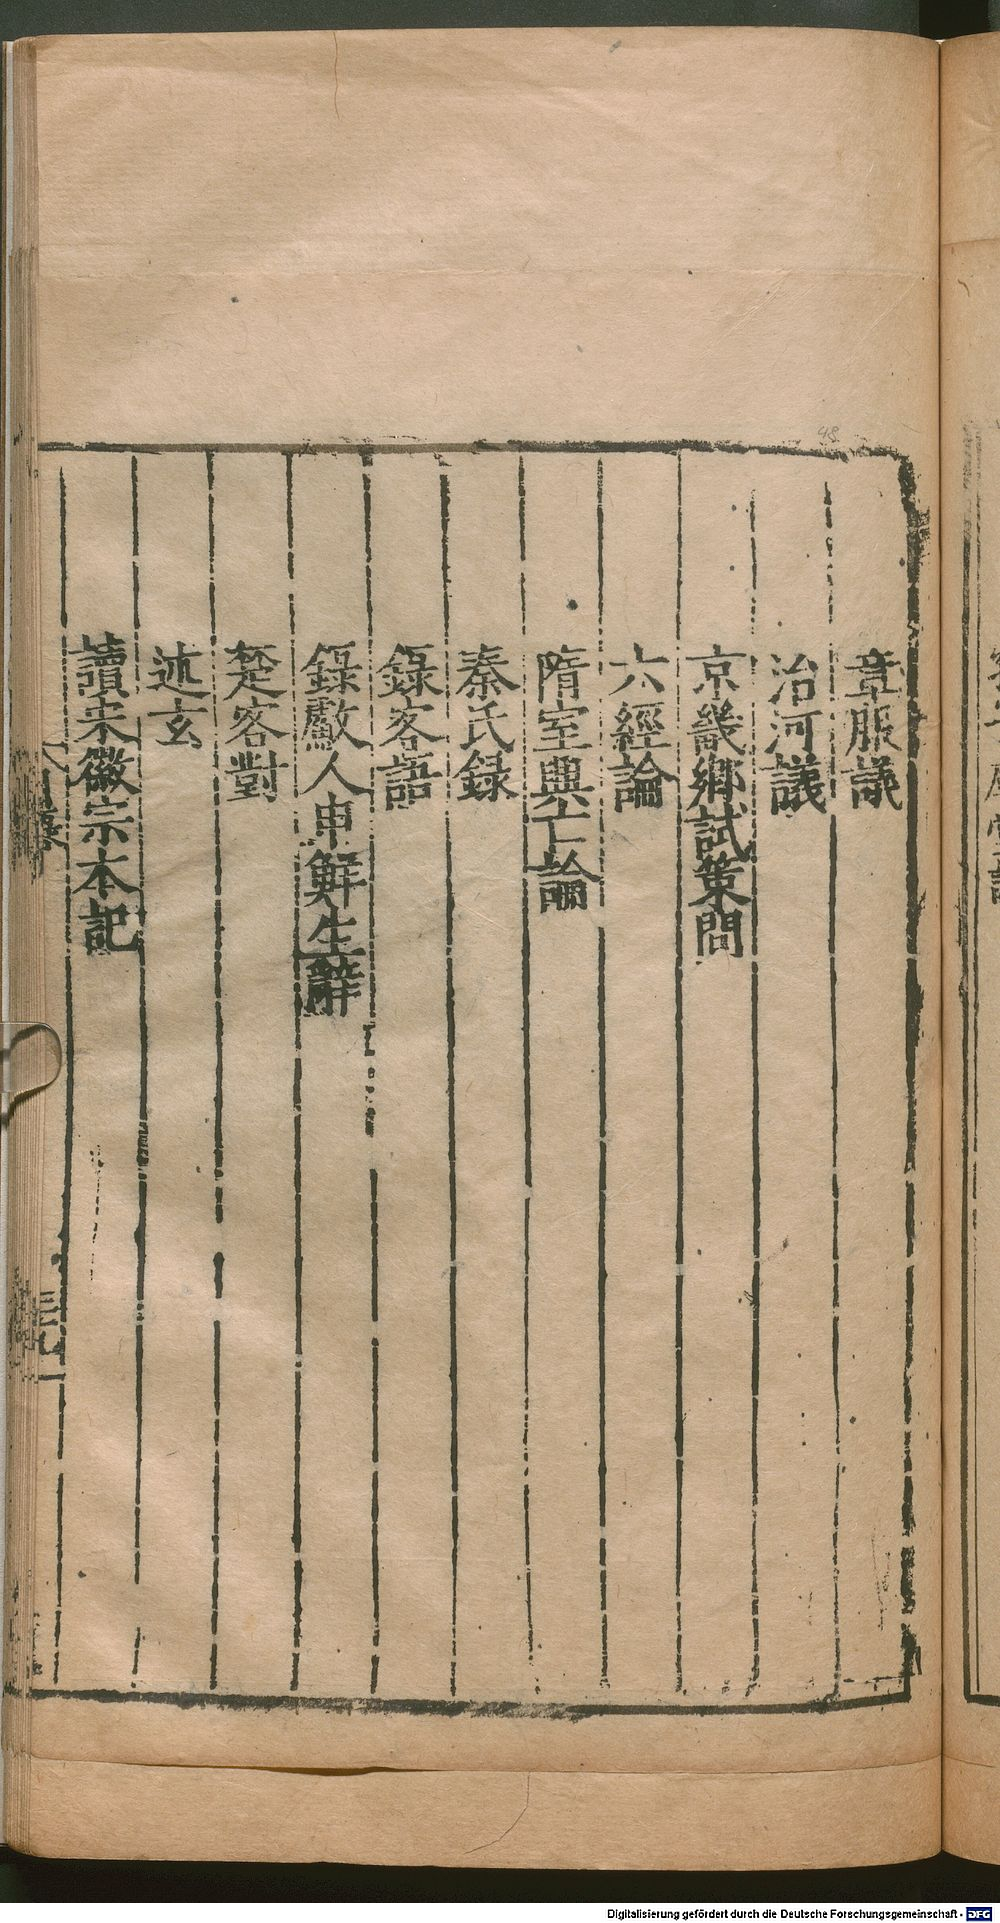 章服議
治河議
京畿鄉試策問
六經論
隋室興亡論
秦氏録
錄客語
錄敵人申鮮生辭
楚客對
述玄
讀宋徽宗本記
48
Digitalisierung gefördert durch die Deutsche Forschungsgemeinschaft - DFG